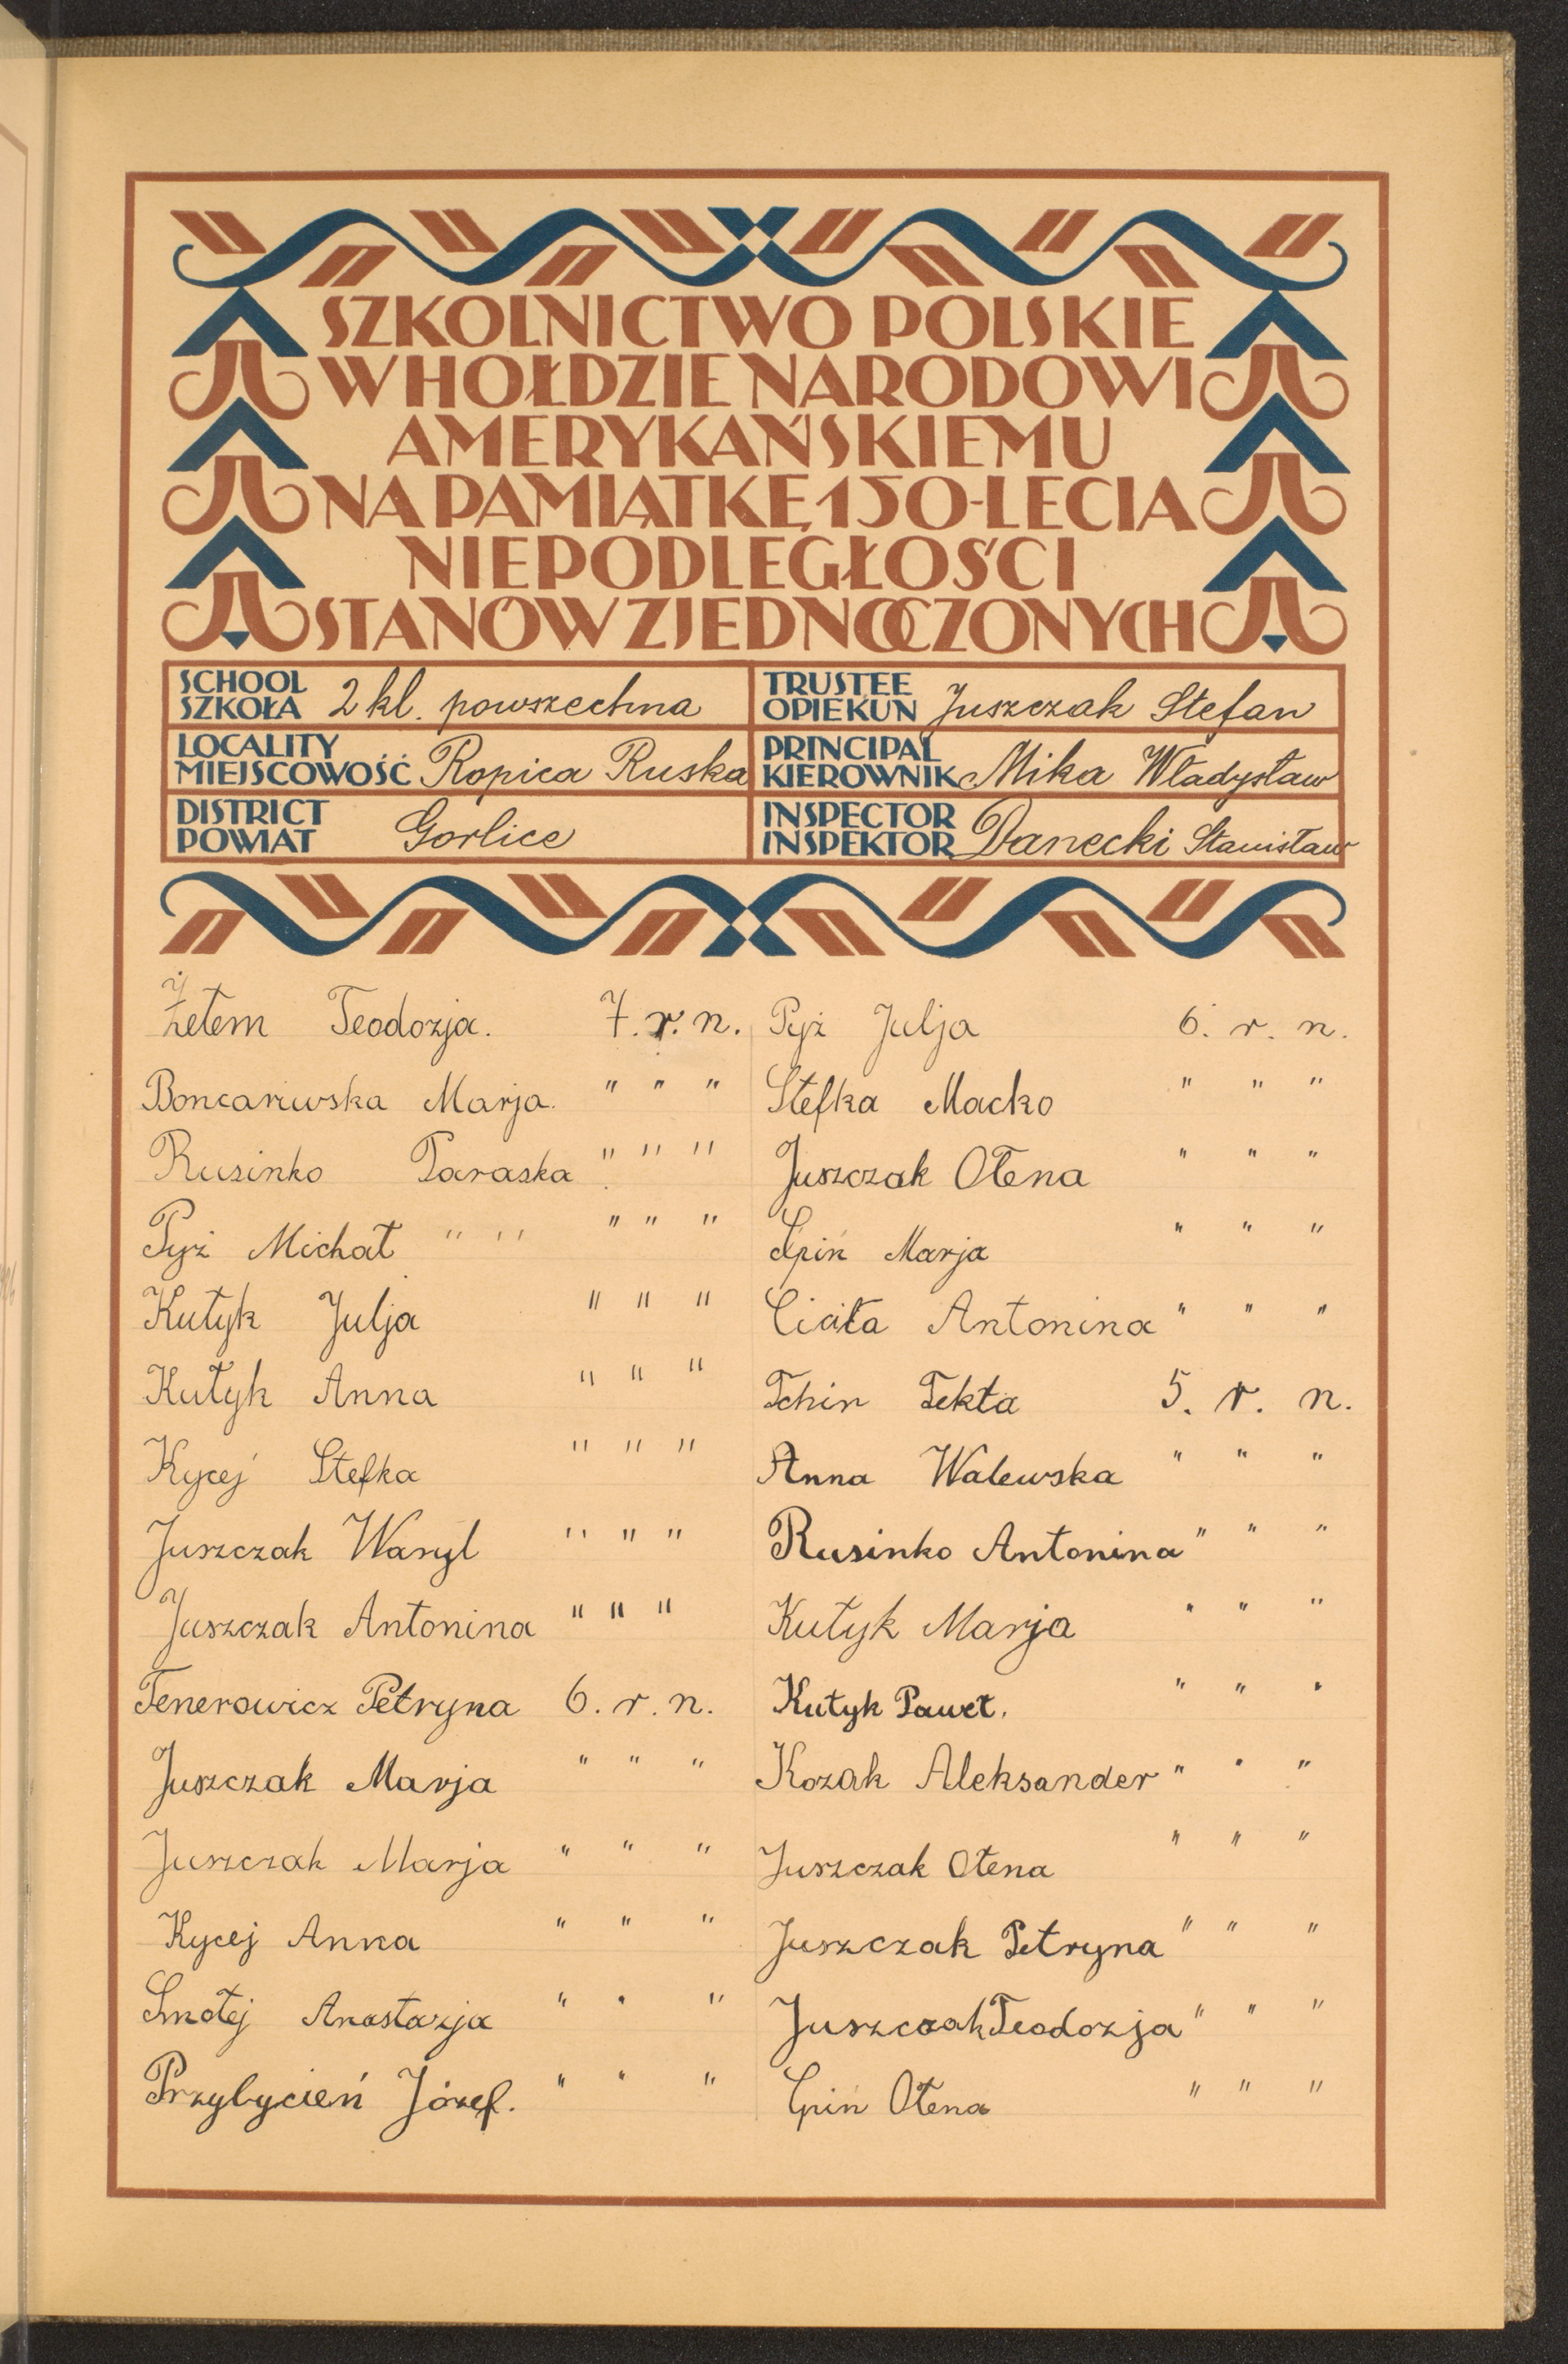 SZKOLNICTWO POLSKIE
W HOŁDZIE NARODOWI
AMERYKAŃSKIEMU
NA PAMIĄTKĘ 150-LECIA
NIEPODLEGŁOŚCI
STANÓW ZJEDNOCZONYCH
SCHOOL
SZKOŁA 2 kl. powszechna
TRUSTEE
OPIEKUN Juszczak Stefan
LOCALITY
MIEJSCOWOŚĆ Ropica Ruska
PRINCIPAL
KIEROWNIK Mika Władysław
DISTRICT
POWIAT Gorlice
INSPECTOR
INSPEKTOR Danecki Stanisław
Żełem Teodozja. 7. r. n.
Marja. " " "
Rusinko Paraska " " "
Pyż Michał " " " " "
Kutyk Julja " " "
Kutyk Anna " " "
Kycej Stefka " " "
Juszczak Wasyl " " "
Juszczak Antonina " " "
Tenerowicz Petryna 6. r. n.
Juszczak Marja " " "
Juszczak Marja " " "
Kycej Anna " " "
Smołej Anastazja " " "
Przybycień Józef. " " "
Pyż Julja 6. r. n.
Stefka Macko " " "
Juszczak Ołena " " "
Śpiń Marja " " "
Ciała Antonina " " "
Tekla 5. r. n.
Anna Walewska " " "
Rusinko Antonina " " "
Kutyk Marja " " "
Kutyk Paweł. " " "
Kozak Aleksander " " "
Juszczak Ołena " " "
Juszczak Petryna " " "
Juszczak Teodozja " " "
Ołena " " "